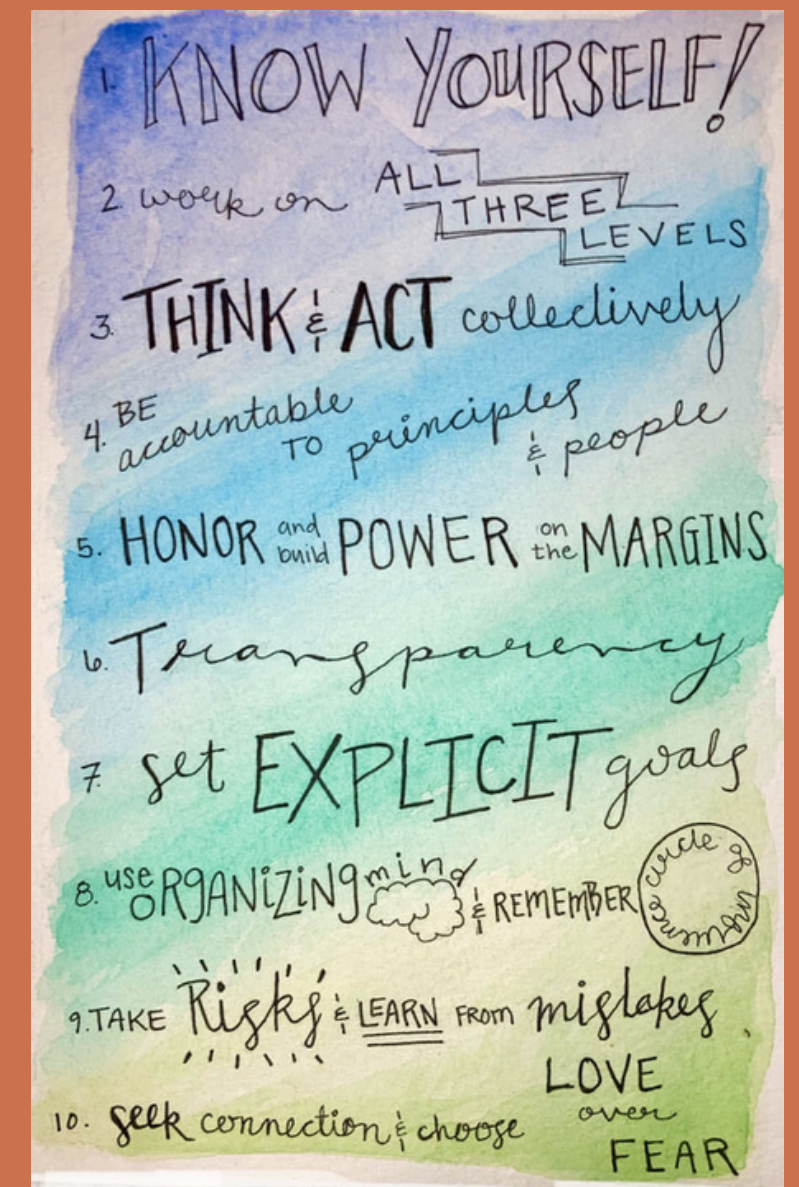 1. KNOW YOURSELF!
2 work on ALL THREE LEVELS
3. THINK & ACT collectively
4. BE accountable TO principles & people
5. HONOR and build POWER on the MARGINS
6. Transparency
7. set EXPLICIT goals
8. use ORGANIZING mind & REMEMBER circle of influence
9. TAKE Risks & LEARN FROM mistakes
10. seek connection & choose LOVE over FEAR